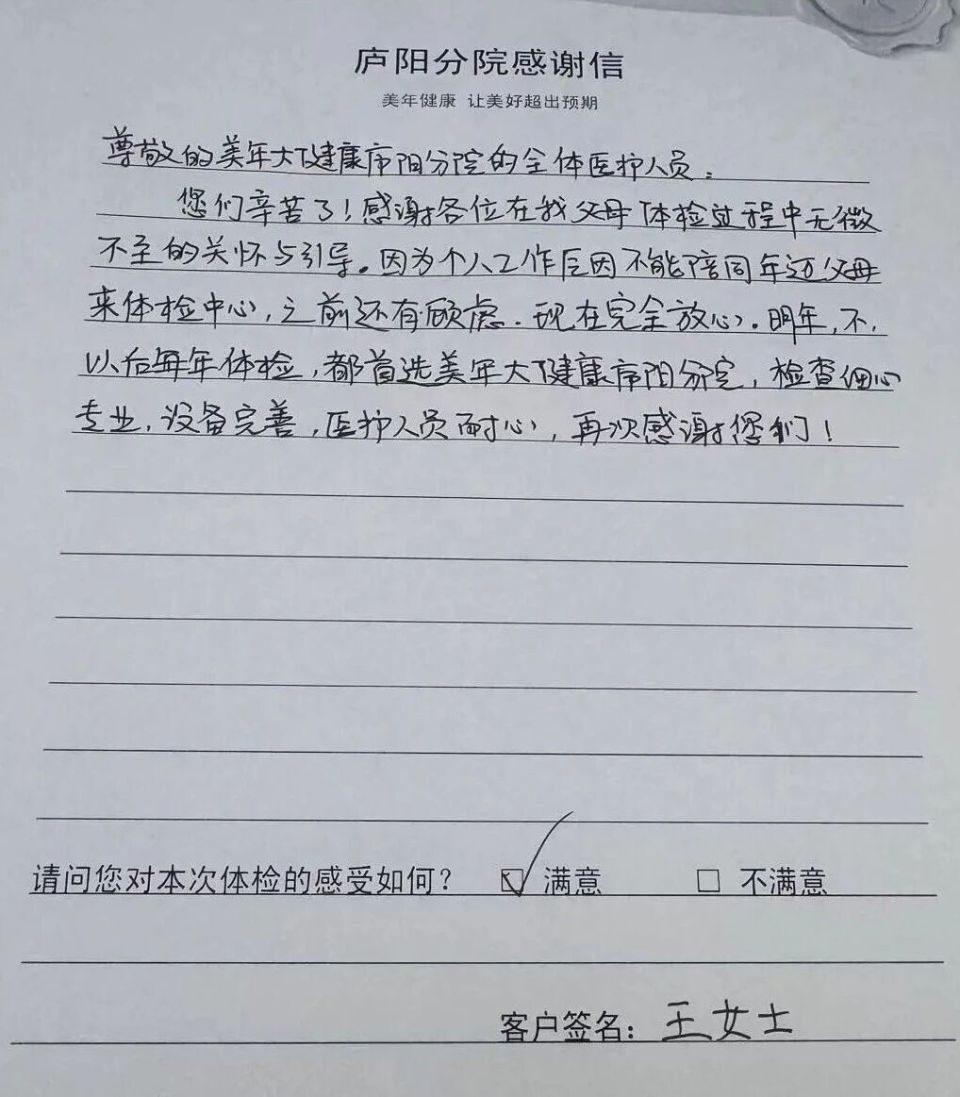 庐阳分院感谢信
美年健康 让美好超出预期
尊敬的美年大健康庐阳分院的全体医护人员：
您们辛苦了！感谢各位在我父母体检过程中无微
不至的关怀与引导。因为个人工作原因不能陪同年迈父母
来体检中心，之前还有顾虑．现在完全放心．明年，不，
以后每年体检，都首选美年大健康庐阳分院，检查细心
专业，设备完善，医护人员耐心，再次感谢您们！
请问您对本次体检的感受如何？ ☑ 满意 □ 不满意
客户签名：王女士